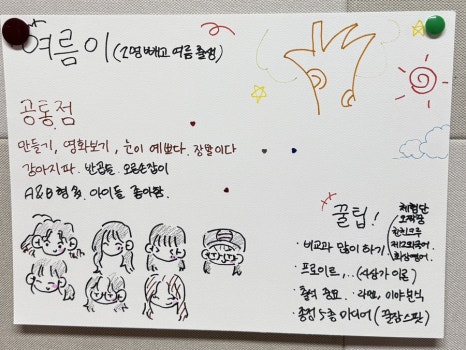 여름이 (2명 빼고 여름 출생)
공통점
만들기, 영화보기, 눈이 예쁘다. 장발이다
강아지파. 반곱슬. 오른손잡이
A&B형 多. 아이돌 좋아함.
꿀팁!
· 비교과 많이 하기
체험단
한치므루
제2외국어
화상영어
· 프로이트, .. (4상가 이론)
· 출석 중요. · 라멘, 이야분식
· 종정 5층 마이어 (꿀잠 스팟)